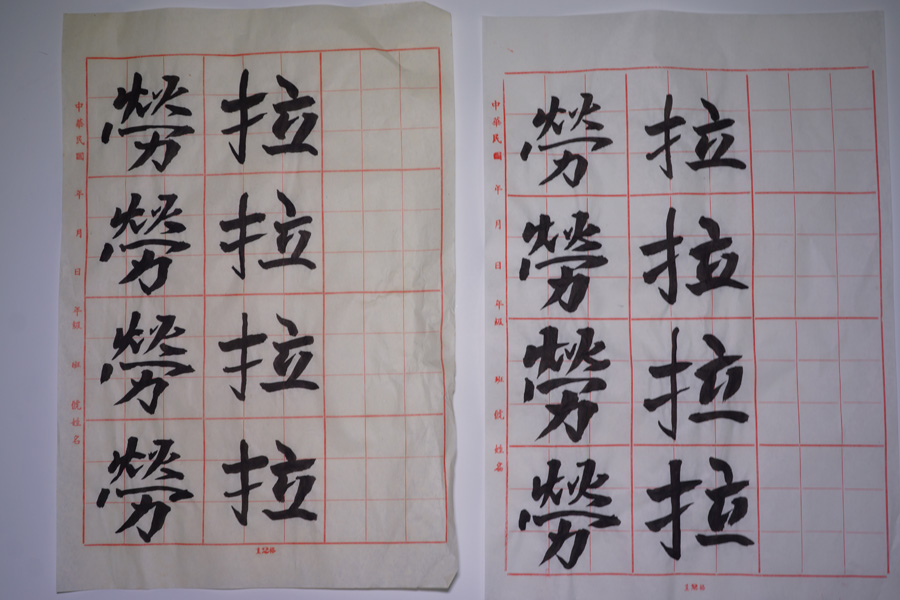 勞拉
勞拉
勞拉
勞拉
中華民國 年 月 日 年級 班 號 姓名
勞拉
勞拉
勞拉
勞拉
中華民國 年 月 日 年級 班 號 姓名